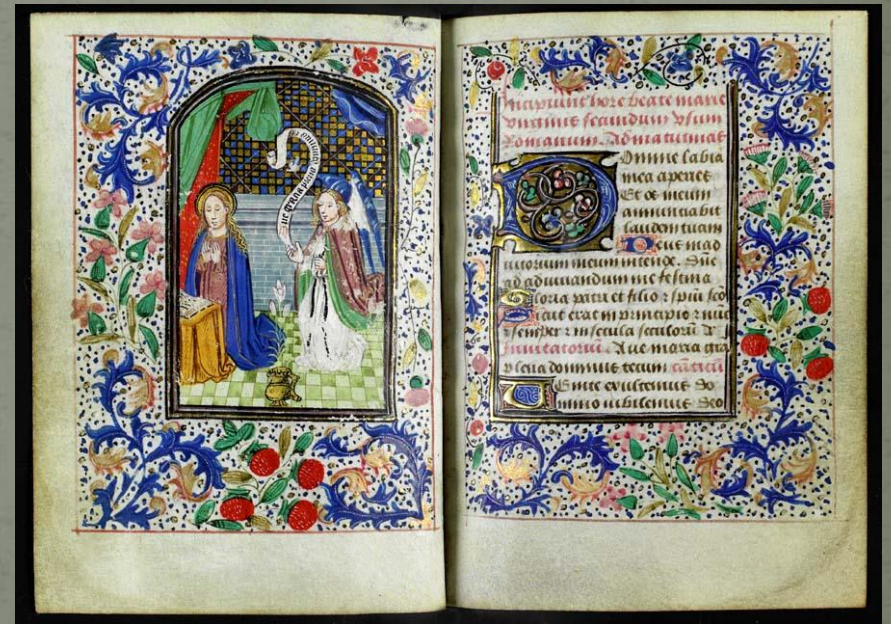 ave gracia plena dominus
Incipiunt hore beate marie
virginis secundum usum
Romanum. Ad matutinas
Domine labia
mea aperies
Et os meum
annunciabit
laudem tuam
Deus in ad
iutorium meum intende. Dne
ad adiuuandum me festina
Gloria patri et filio ⁊ spiui sco
Sicut erat in principio ⁊ nuc
⁊ semper ⁊ in secula seculorū
Inuitatoriū. Aue maria gra
plena dominus tecum
Uenite exultemus do
mino iubilemus deo